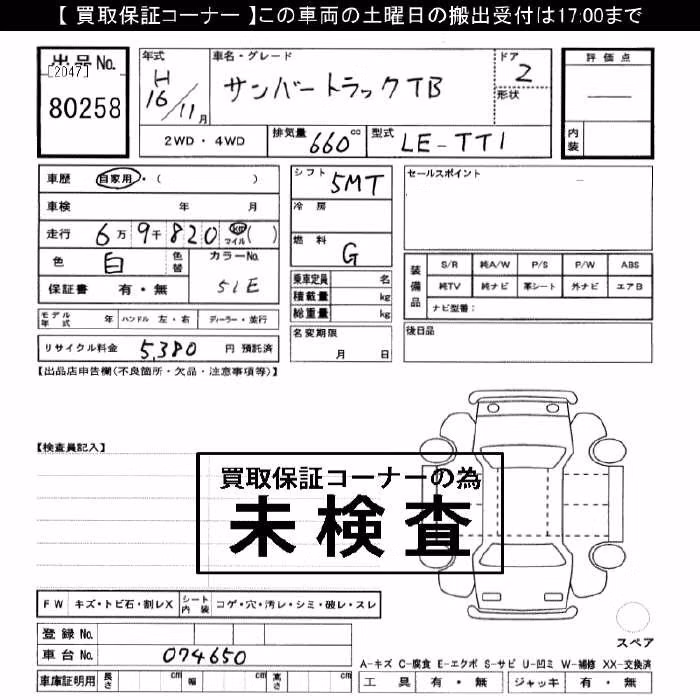 【 買取保証コーナー 】この車両の土曜日の搬出受付は17:00まで
出品No.
[2047]
80258
年式
H
16/11月
車名・グレード
サンバートラックTB
ドア
2
形状
評価点
内装
2WD・4WD
排気量 660cc
型式 LE-TT1
車歴 自家用・( )
車検 年 月
走行 6万9千820 km マイル ( )
色 白 色替
カラーNo.
51E
保証書 有・無
シフト 5MT
冷房
燃料 G
乗車定員 名
積載量 kg
総重量 kg
セールスポイント
装備品
S/R 純A/W P/S P/W ABS
純TV 純ナビ 革シート 外ナビ エアB
ナビ型番:
モデル年式 年 ハンドル 左・右 ディーラー・並行
リサイクル料金 5,380 円 預託済
名変期限
月 日
後日品
【出品店申告欄(不良箇所・欠品・注意事項等)】
【検査員記入】
買取保証コーナーの為
未検査
FW キズ・トビ石・割レX シート内装 コゲ・穴・汚レ・シミ・破レ・スレ
登録No.
車台No. 074650
車庫証明用 長さ cm 幅 cm 高さ cm
スペア
A-キズ C-腐食 E-エクボ S-サビ U-凹ミ W-補修 XX-交換済
工具 有・無 ジャッキ 有・無